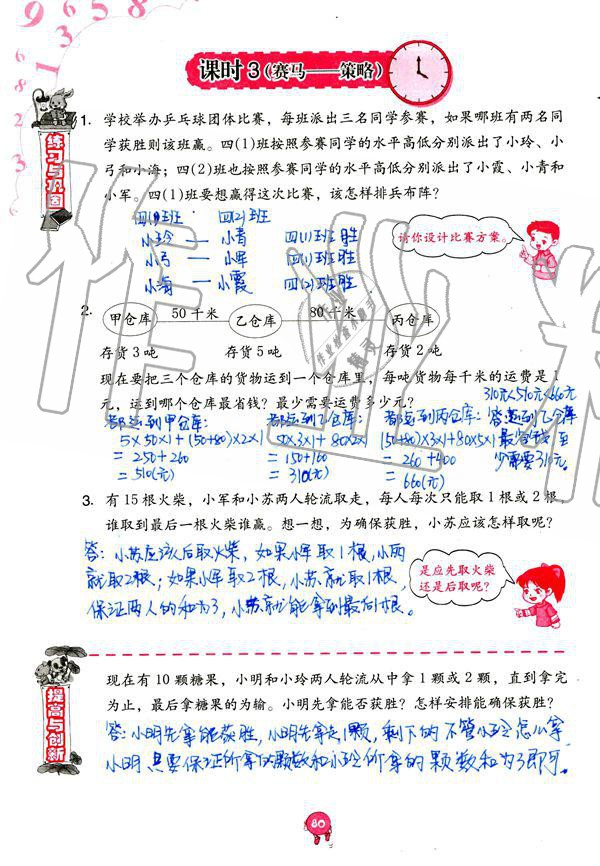 9 3 6 5 8
课时3(赛马——策略)
练习与巩固
1. 学校举办乒乓球团体比赛，每班派出三名同学参赛，如果哪班有两名同
学获胜则该班赢。四(1)班按照参赛同学的水平高低分别派出了小玲、小
弓和小海；四(2)班也按照参赛同学的水平高低分别派出了小霞、小青和
小军。四(1)班要想赢得这次比赛，该怎样排兵布阵？
四(1)班 四(2)班
小玲 — 小青 四(1)班胜
小弓 — 小军 四(1)班胜
小海 — 小霞 四(2)班胜
请你设计比赛方案。
2. 甲仓库 50千米 乙仓库 80千米 丙仓库
存货3吨 存货5吨 存货2吨
现在要把三个仓库的货物运到一个仓库里，每吨货物每千米的运费是1
元，运到哪个仓库最省钱？最少需要运费多少元？
310元<510元<660元
都运到甲仓库：
5×50×1+(50+80)×2×1
=250+260
=510(元)
都运到乙仓库：
50×3×1+80×2×1
=150+160
=310(元)
都运到丙仓库：
(50+80)×3×1+80×5×1
=260+400
=660(元)
答：运到乙仓库
最省钱，至
少需要310元。
3. 有15根火柴，小军和小苏两人轮流取走，每人每次只能取1根或2根，
谁取到最后一根火柴谁赢。想一想，为确保获胜，小苏应该怎样取呢？
答：小苏应该后取火柴，如果小军取1根，小苏
就取2根；如果小军取2根，小苏就取1根，
保证两人的和为3，小苏就能拿到最后1根。
是应先取火柴
还是后取呢？
提高与创新
现在有10颗糖果，小明和小玲两人轮流从中拿1颗或2颗，直到拿完
为止，最后拿糖果的为输。小明先拿能否获胜？怎样安排能确保获胜？
答：小明先拿能获胜，小明先拿走1颗，剩下的不管小玲怎么拿，
小明只要保证所拿的颗数和小玲所拿的颗数和为3即可。
80